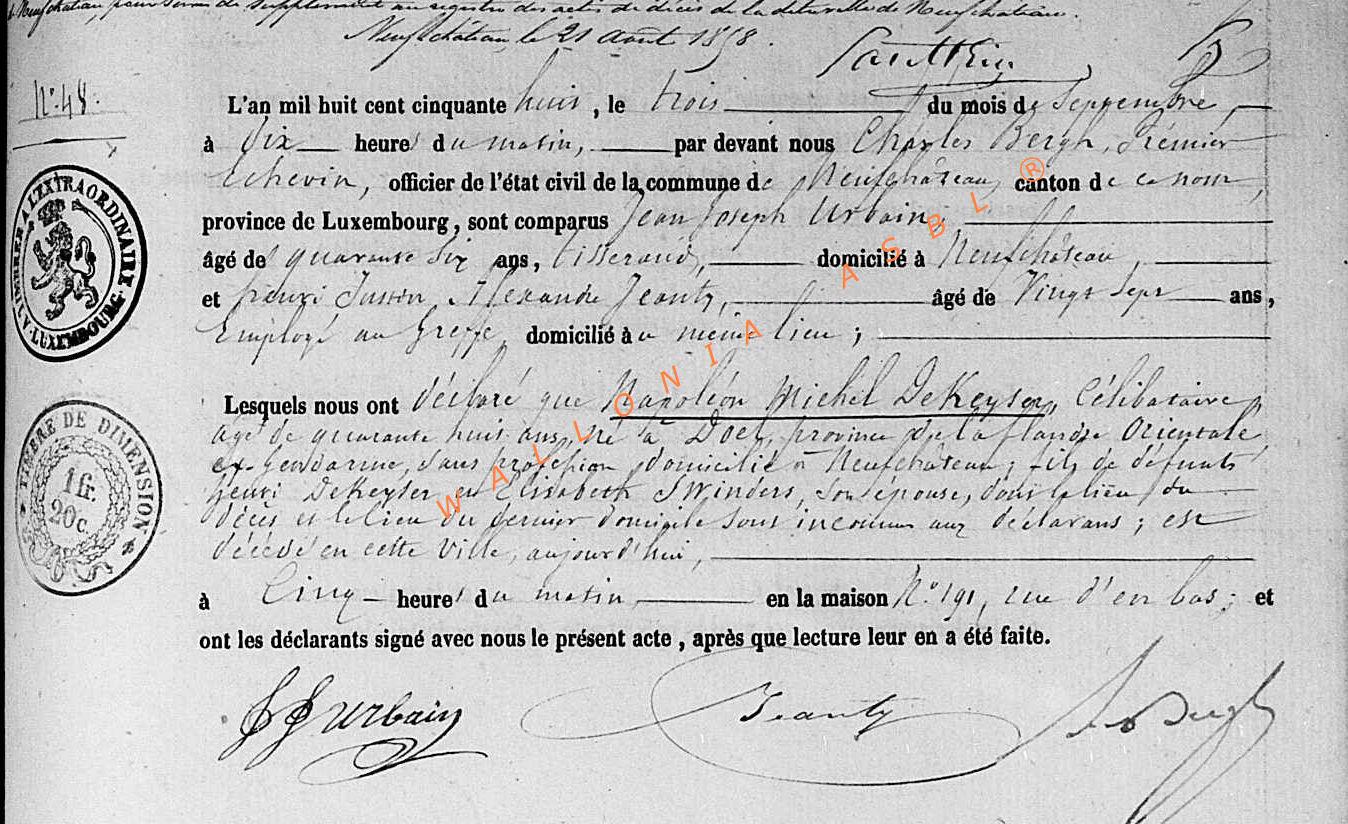 Neufchâteau, pour servir de supplément au registre des actes de décès de la ville de Neufchâteau.
Neufchâteau le 21 Août 1858.
N° 48.
L'an mil huit cent cinquante huit, le trois du mois de Septembre,
à Dix heures du matin, par devant nous Charles Bergh, Prémier
Echevin, officier de l'état civil de la commune de Neufchâteau, canton de ce nom,
province de Luxembourg, sont comparus Jean Joseph Urbain,
âgé de quarante six ans, tisserand, domicilié à Neufchâteau,
et henri Justin Alexandre Jeanty, âgé de Vingt Sept ans,
Employé au Greffe, domicilié au même lieu ;
Lesquels nous ont déclaré que Napoléon Michel DeKeyser, Célibataire,
agé de quarante huit ans, né à Doel, province de la flandre Orientale,
ex-Gendarme, sans profession, domicilié à Neufchâteau, fils de défunts
henri DeKeyser et Elisabeth Swinders, son épouse, dont le lieu du
décès et le lieu du dernier domicile sont inconnus aux déclarans ; est
décédé en cette Ville, aujourd'hui,
à Cinq heures du matin en la maison N° 191, rue d'en bas ; et
ont les déclarants signé avec nous le présent acte, après que lecture leur en a été faite.
JJ Urbain Jeanty Bergh
TIMBRE A L'EXTRAORDINAIRE
LUXEMBOURG
TIMBRE DE DIMENSION
1 fr.
20 c.
WALLONIA ASBL ®